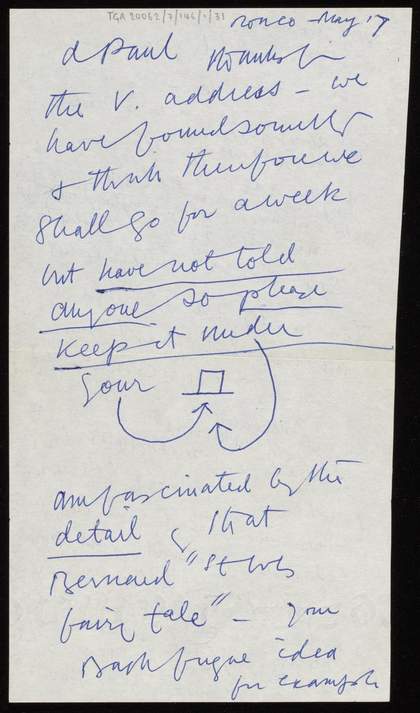 TGA 20052/7/146/1/31
Ronco May 17
d Paul Thanks for
the V. address – we
have found somewhere
& think therefore we
shall go for a week
but have not told
anyone so please
keep it under
your
am fascinated by the
detail of that
Bernard "St Ives
fairy tale" – your
Bach fugue idea
for example